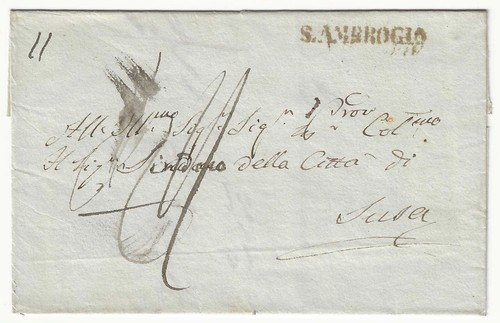 11
S. AMBROGIO
All' Ill.mo Sig.r Sig.r Prov. Col.mo
Il Sig.r Sindaco della Città di
Susa